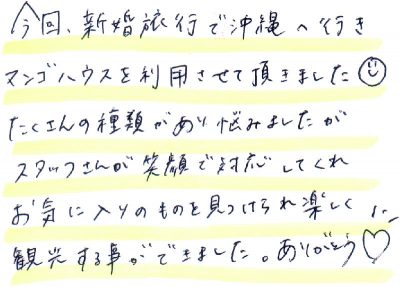 今回、新婚旅行で沖縄へ行き
マンゴハウスを利用させて頂きました
たくさんの種類があり悩みましたが
スタッフさんが笑顔で対応してくれ
お気に入りのものを見つけられ楽しく
観光する事ができました。ありがとう♡